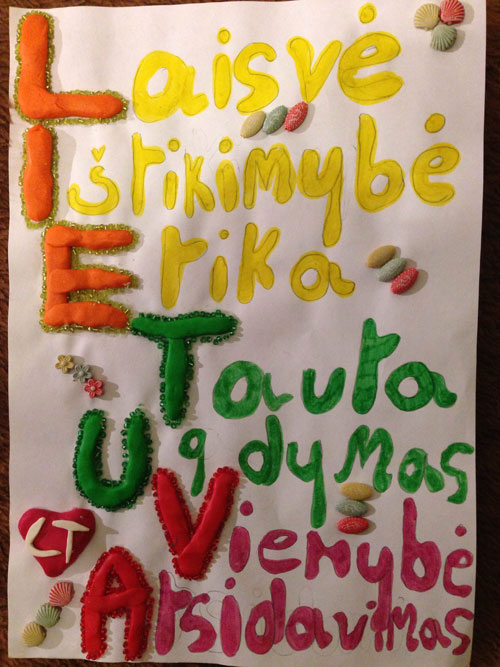 Laisvė
Ištikimybė
Etika
Tauta
Ugdymas
LT
Vienybė
Atsidavimas